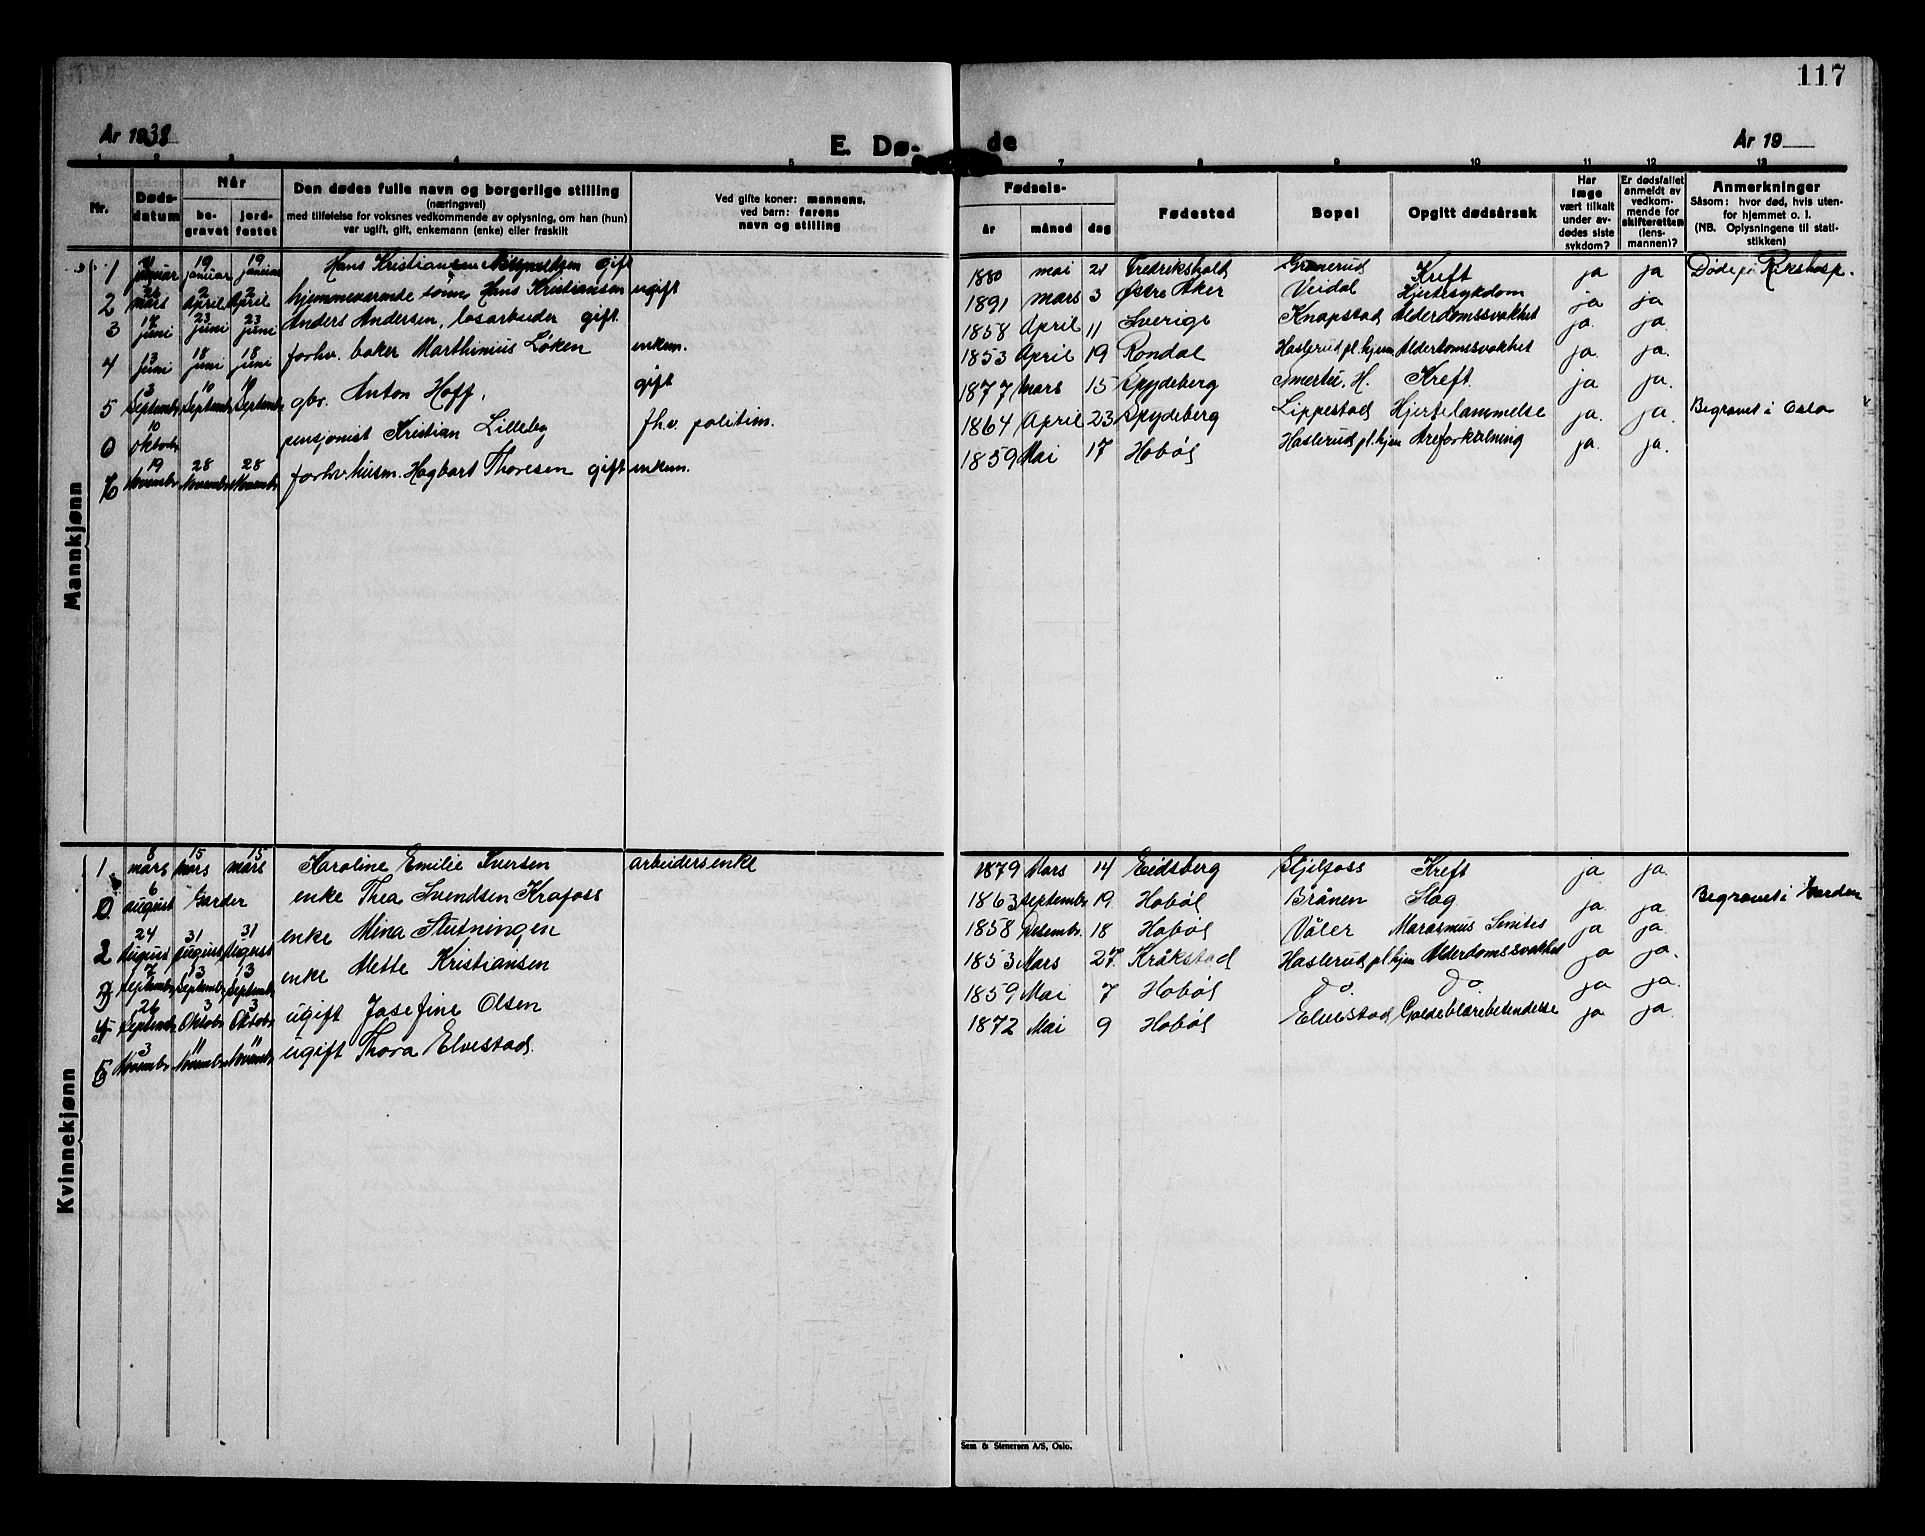 117
År 1938
E. Dø-
de
År 19
1 2 3 4 5 7 8 9 10 11 12 13
Nr.
Døds-
datum
Når
be-
gravet
jord-
festet
Den dødes fulle navn og borgerlige stilling
(næringsvei)
med tilføielse for voksnes vedkommende av oplysning, om han (hun)
var ugift, gift, enkemann (enke) eller fraskilt
Ved gifte koner: mannens,
ved barn: farens
navn og stilling
Fødsels-
år måned dag
Fødested
Bopel
Opgitt dødsårsak
Har
læge
vært tilkalt
under av-
dødes siste
sykdom?
Er dødsfallet
anmeldt av
vedkom-
mende for
skifteretten
(lens-
mannen)?
Anmerkninger
Såsom: hvor død, hvis uten-
for hjemmet o. l.
(NB. Oplysningene til stati-
stikken)
Mannkjønn
1 januar 19 januar 19 januar Hans Kristiansen gift 1880 mai 21 Fredrikshald Grønerud Kreft ja ja Døde på Rikshosp.
2 mars 2 April 2 April hjemmeværende sønn Hans Kristiansen ugift 1891 mars 3 Østre Aker Veidal Hjertesykdom ja ja
3 17 juni 23 juni 23 juni Anders Andersen, løsarbeider gift 1858 April 11 Sverige Knapstad Alderdomssvakhet ja ja
4 13 juni 18 juni 18 juni forhv. baker Marthinius Løken enkem. 1853 April 19 Rondal Haslerud pl.hjem Alderdomssvakhet ja ja.
5 3 September 10 September 10 September gbr. Anton Hoff, gift 1877 mars 15 Spydeberg Smertu, H. Kreft ja ja.
6 10 oktober pensjonist Kristian Lilleby fhv. politim. 1864 April 23 Spydeberg Lippestad Hjertelammelse ja. ja. Begravet i Oslo
19 November 28 November 28 November forhv husm. Hagbart Thoresen gift enkem. 1859 Mai 17 Hobøl Haslerud pl.hjem Åreforkalkning ja. ja.
Kvinnekjønn
1 8 mars 15 mars 15 mars Karoline Emilie Iversen arbeidersenke 1879 Mars 14 Eidsberg Skjelfoss Kreft ja ja
6 august Garder enke Thea Svendsen Krafoss 1863 september 19 Hobøl Brånen Slag ja ja Begravet i Garder
2 24 August 31 August 31 August enke Mina Stutningen 1858 Desembr. 18 Hobøl Våler Marasmus Senilis ja ja.
3 7 September 13 September 13 September enke Mette Kristiansen 1853 Mars 27. Kråkstad Haslerud pl hjem Alderdomssvakhet ja ja.
4 26 September 3 Oktobr 3 Oktobr ugift Josefine Olsen 1859 Mai 7 Hobøl do. do. ja ja.
5 3 Novembr 11 Novembr 11 Novembr ugift Thora Elvestad. 1872 Mai 9 Hobøl Elvestad Galdeblærebetendelse ja ja
Sem & Stenersen A/S, Oslo.